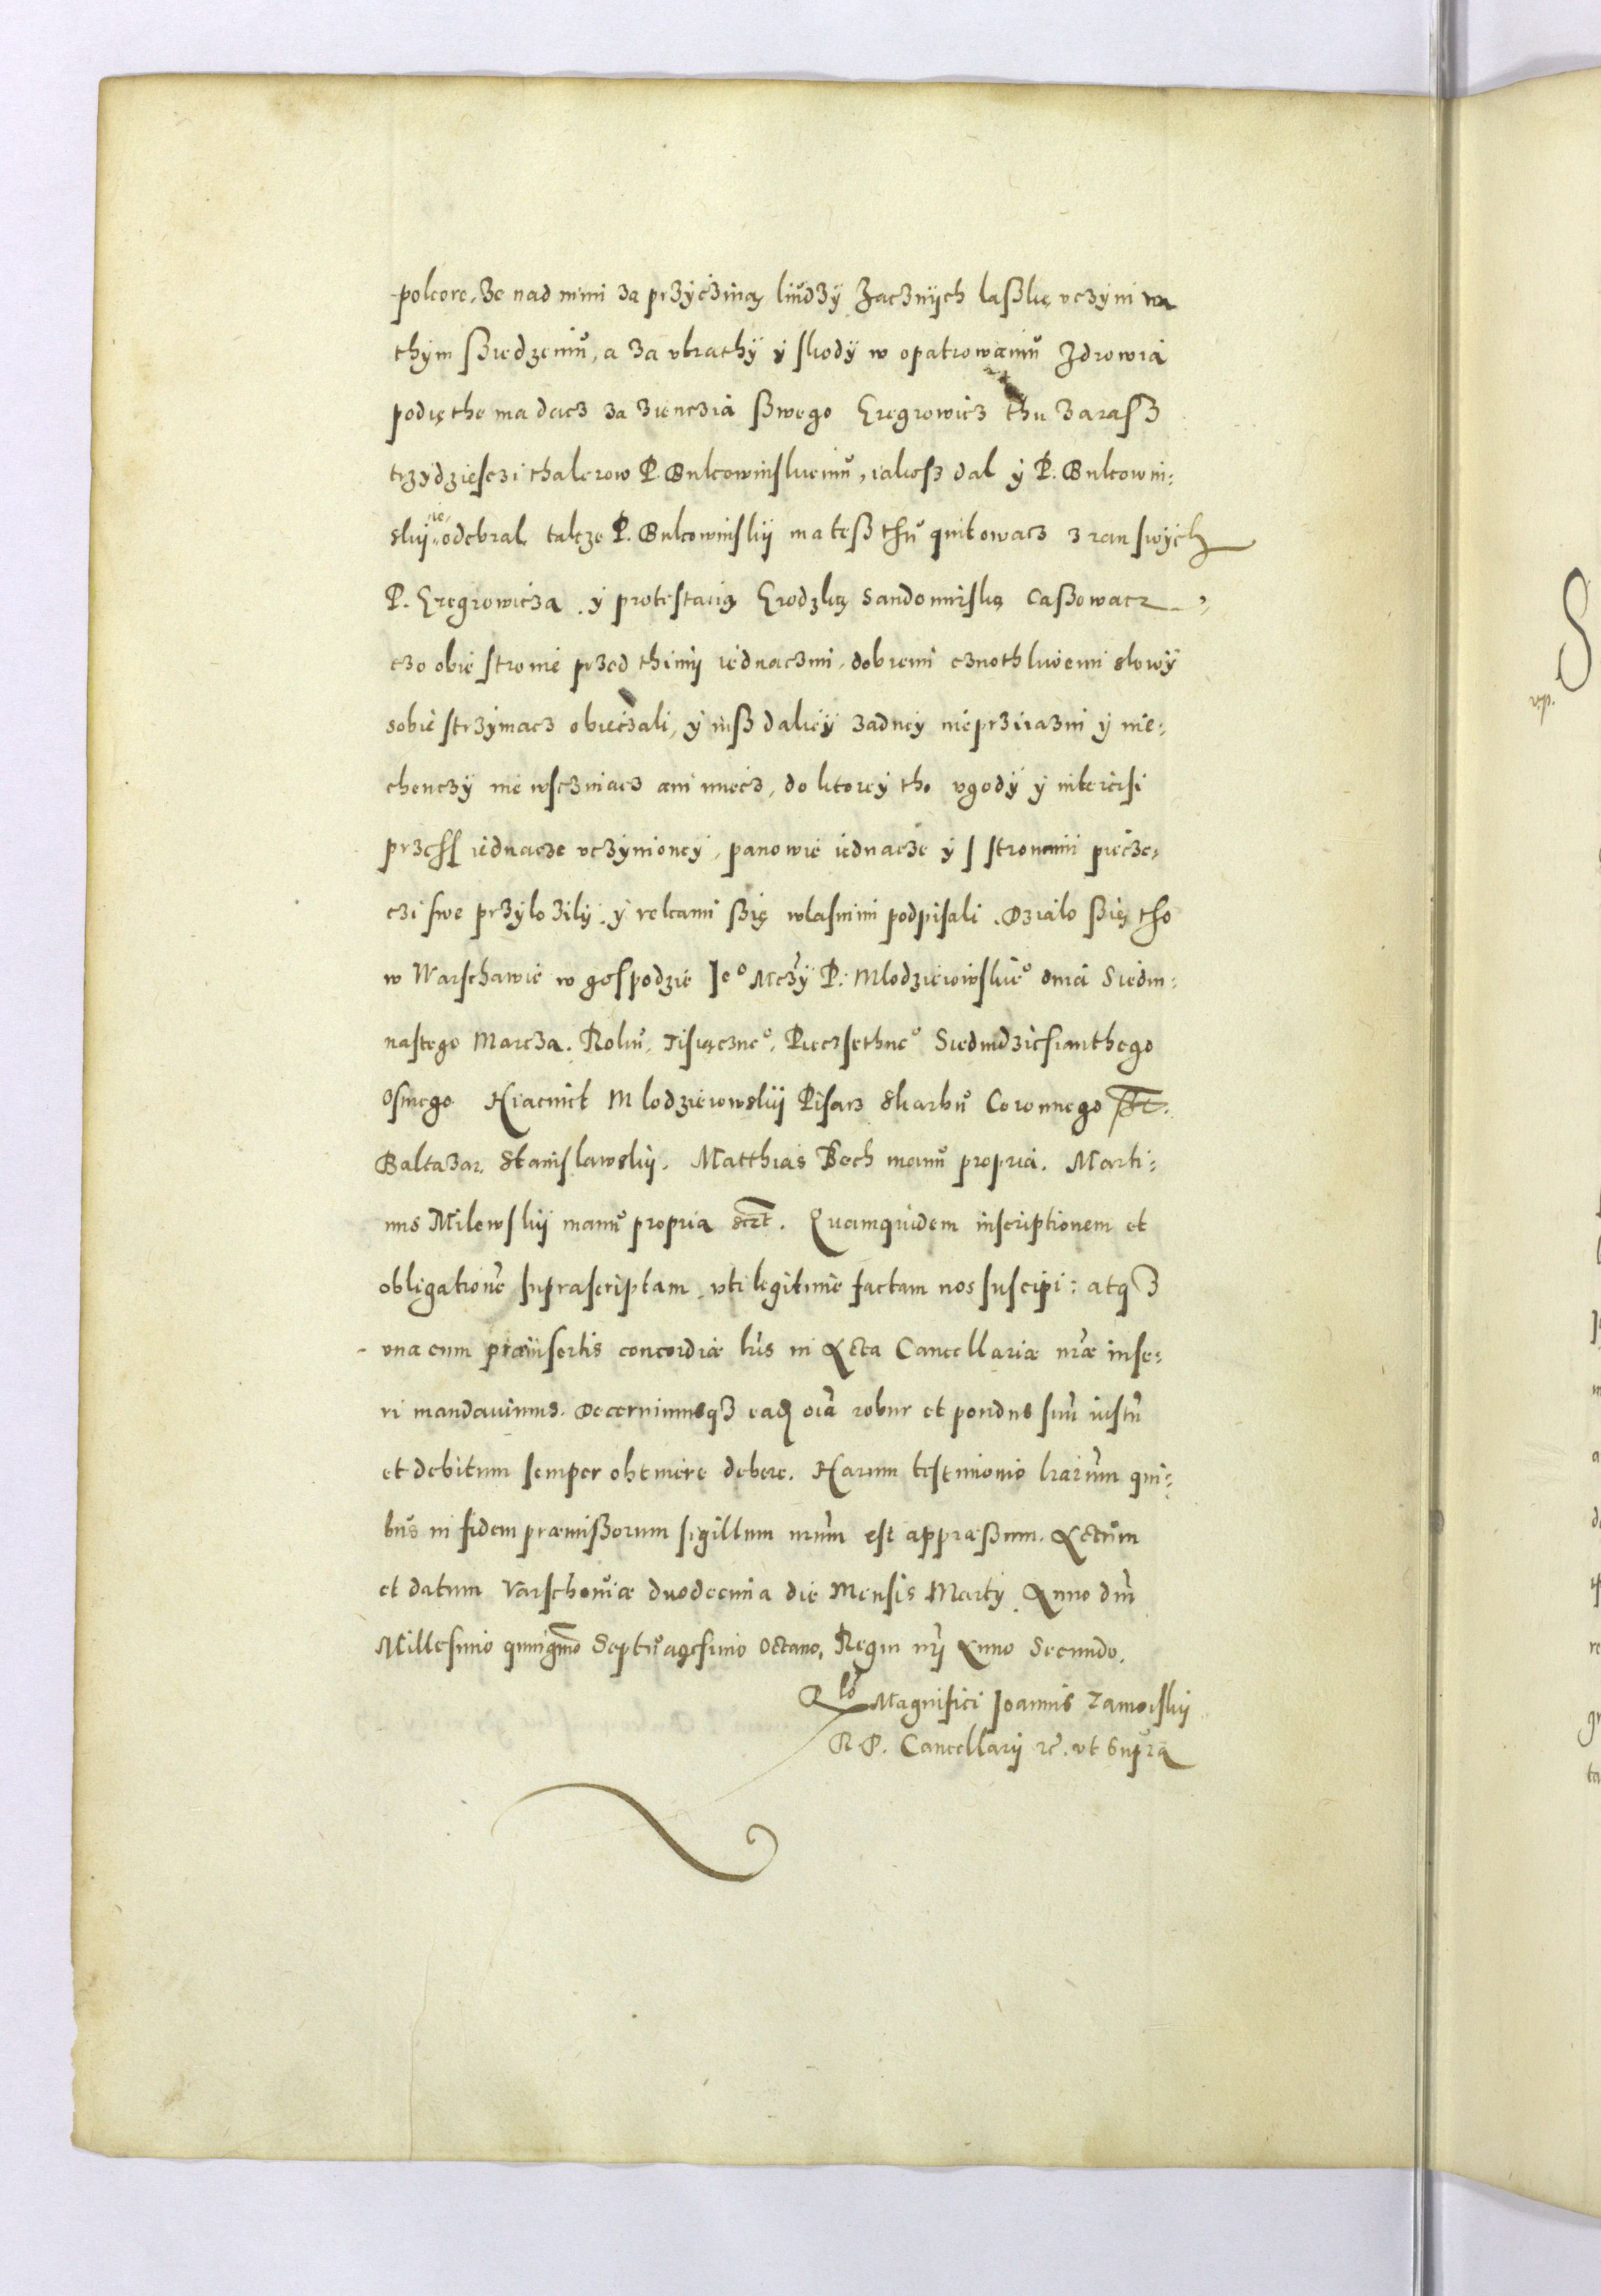 pokore, że nad nimi za przyczŷną liudzÿ zacznÿch laßkę vczÿni na
thÿm ßiedzeniu, a za vtrathÿ ÿ skodÿ w opatrowaniu zdrowia
podięthe ma dacz za zienczia ßwego Gregrowicz thu zarasz
trzÿdziesczi thalerow P. Bukowinskiemu, iakosz dal ÿ P. Bukowin:
skÿ ie odebral, takze P. Bukowinskÿ ma teß thu quitowacz z ran swÿch
P. Gregrowicza. ÿ protestacią Grodzką Sandomirską Caßowacz
czo obie stronie przed thimÿ iednaczmi, dobremi cznothliwemi slowÿ
sobie strzÿmacz obieczali, ÿ iuß daliеÿ zadneÿ nieprziiazni ÿ nie:
chenczÿ nie wsczniacz ani miecz, do ktoreÿ tho vgodÿ ÿ intercisi
przess iednacze vczÿnioneÿ, panowie iednacze ÿ s stronami piecze,
czi swe przÿlozilÿ, ÿ rekami ßię wlasnimi podpisali. Dzialo ßię tho
w Warschawie w gospodzie Ieº Mczÿ P. Mlodziewowskieº dnia Siedm:
nastego Marcza. Roku, Tisiączneº, Pieczsethneº Siedmdziesianthego
Osmego Hiacint Mlodziewowskÿ Pisarz Skarbu Coronnego sst.
Baltazar Stanislawskÿ. Matthias Bech manu propria. Marti:
nus Milewskÿ manu propria scrt. Quamquidem inscriptionem et
obligatione suprascriptam, vti legitime factam nos suscipi: atq3
vna cum præinsertis concordiæ lris in Acta Cancellariæ nræ inse:
ri mandauimus. Decernimusq3 eadẽ oia robur et pondus suũ iustũ
et debitum semper obtinere debere. Harum testimonio lrarum qui:
bus in fidem præmißorum sigillum nrum est appræßum. Actum
et datum Varschouiæ duodecima die Mensis Martÿ Anno dni
Millesimo quingmo Septuagesimo Octauo, Regni nri Anno Secundo.
Rlo Magnifici Ioannis Zamoiskÿ
R. P. Cancellarÿ rc. vt supra